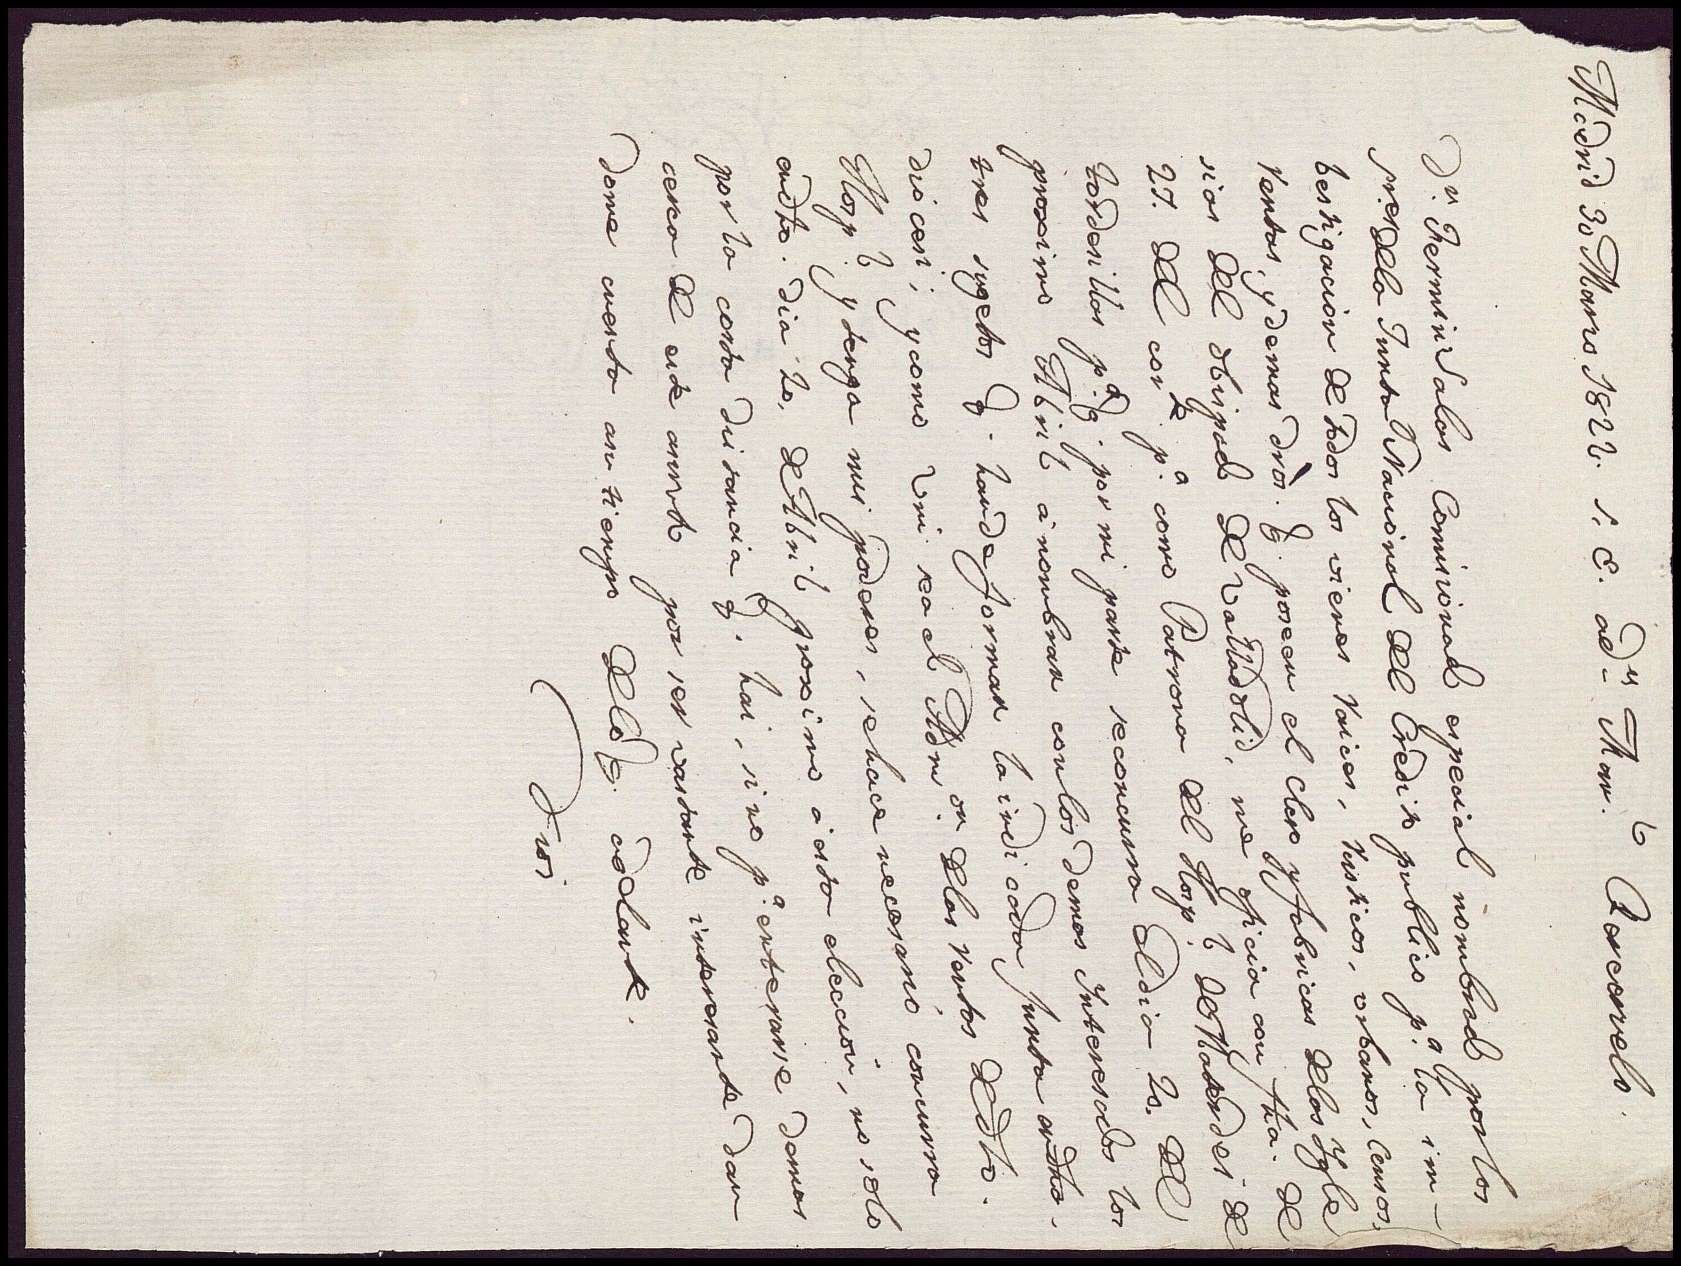 Madrid 30 Marzo 1822. S. C. ad.on Man.l Asconvelo.
Dn. Fermin Salas Comisionado especial nombrado por los
SSres. dela Junta Nacional del Credito publico pa. la im-
bestigacion de todos los vienes raices, rusticos, urbanos, censos,
rentas, y demas dros. q. poseen el clero y fabricas delas Ygle
sias del obispado de Valladolid, me oficia con fha. de
27. del corte. pa. como Patrona del Hospl. de Mater Dei de
tordesillas pa. q. por mi parte se concurra el dia 20. del
proximo Abril à nombrar con los demas Interesados los
tres sugetos q. han de formar la indicada Junta en dha.
diocesi; y como Vm. sea el Admor. delas rentas de dho.
Hospl. y tenga mis poderes, se hace necesario concurra
en dho. dia 20, de Abril proximo à esta eleccion, no solo
por la corta distancia q. hai, sino pa. enterarse demas
cerca de este asunto por ser vastante interesante dan
dome cuenta a su tiempo delo q. adelante.
Dios